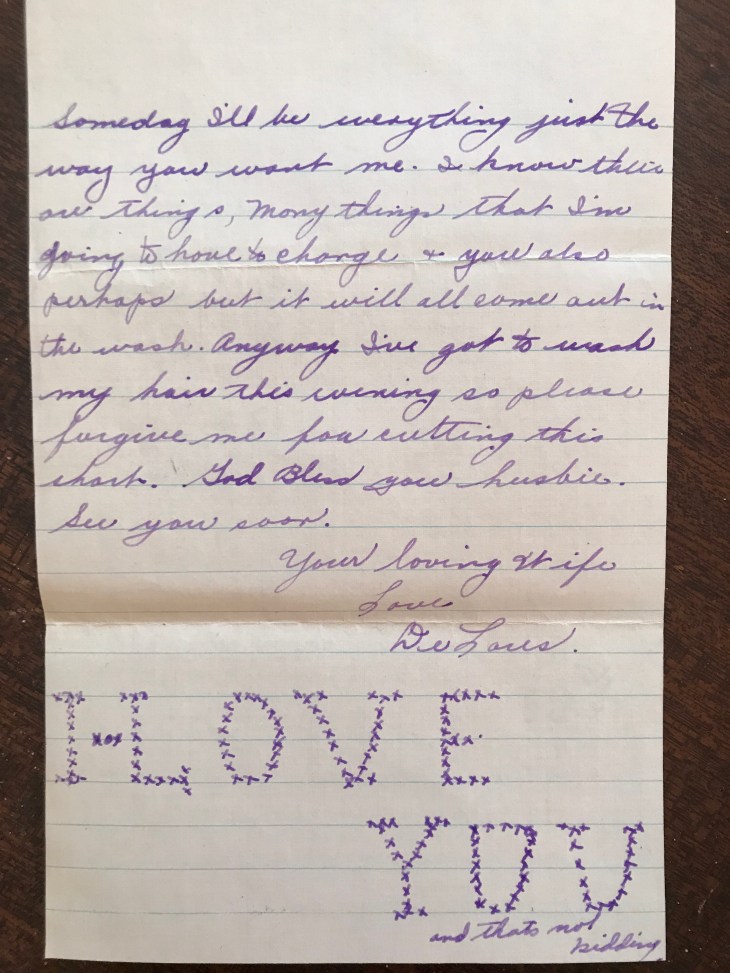 Someday I'll be everything just the
way you want me. I know there
are things, many things that I'm
going to have to change + you also
perhaps but it will all come out in
the wash. Anyway I've got to wash
my hair this evening so please
forgive me for cutting this
short. God Bless you husbie.
See you soon.
Your loving Wife
Love
DeLores.
I LOVE
YOU
and thats not
kidding